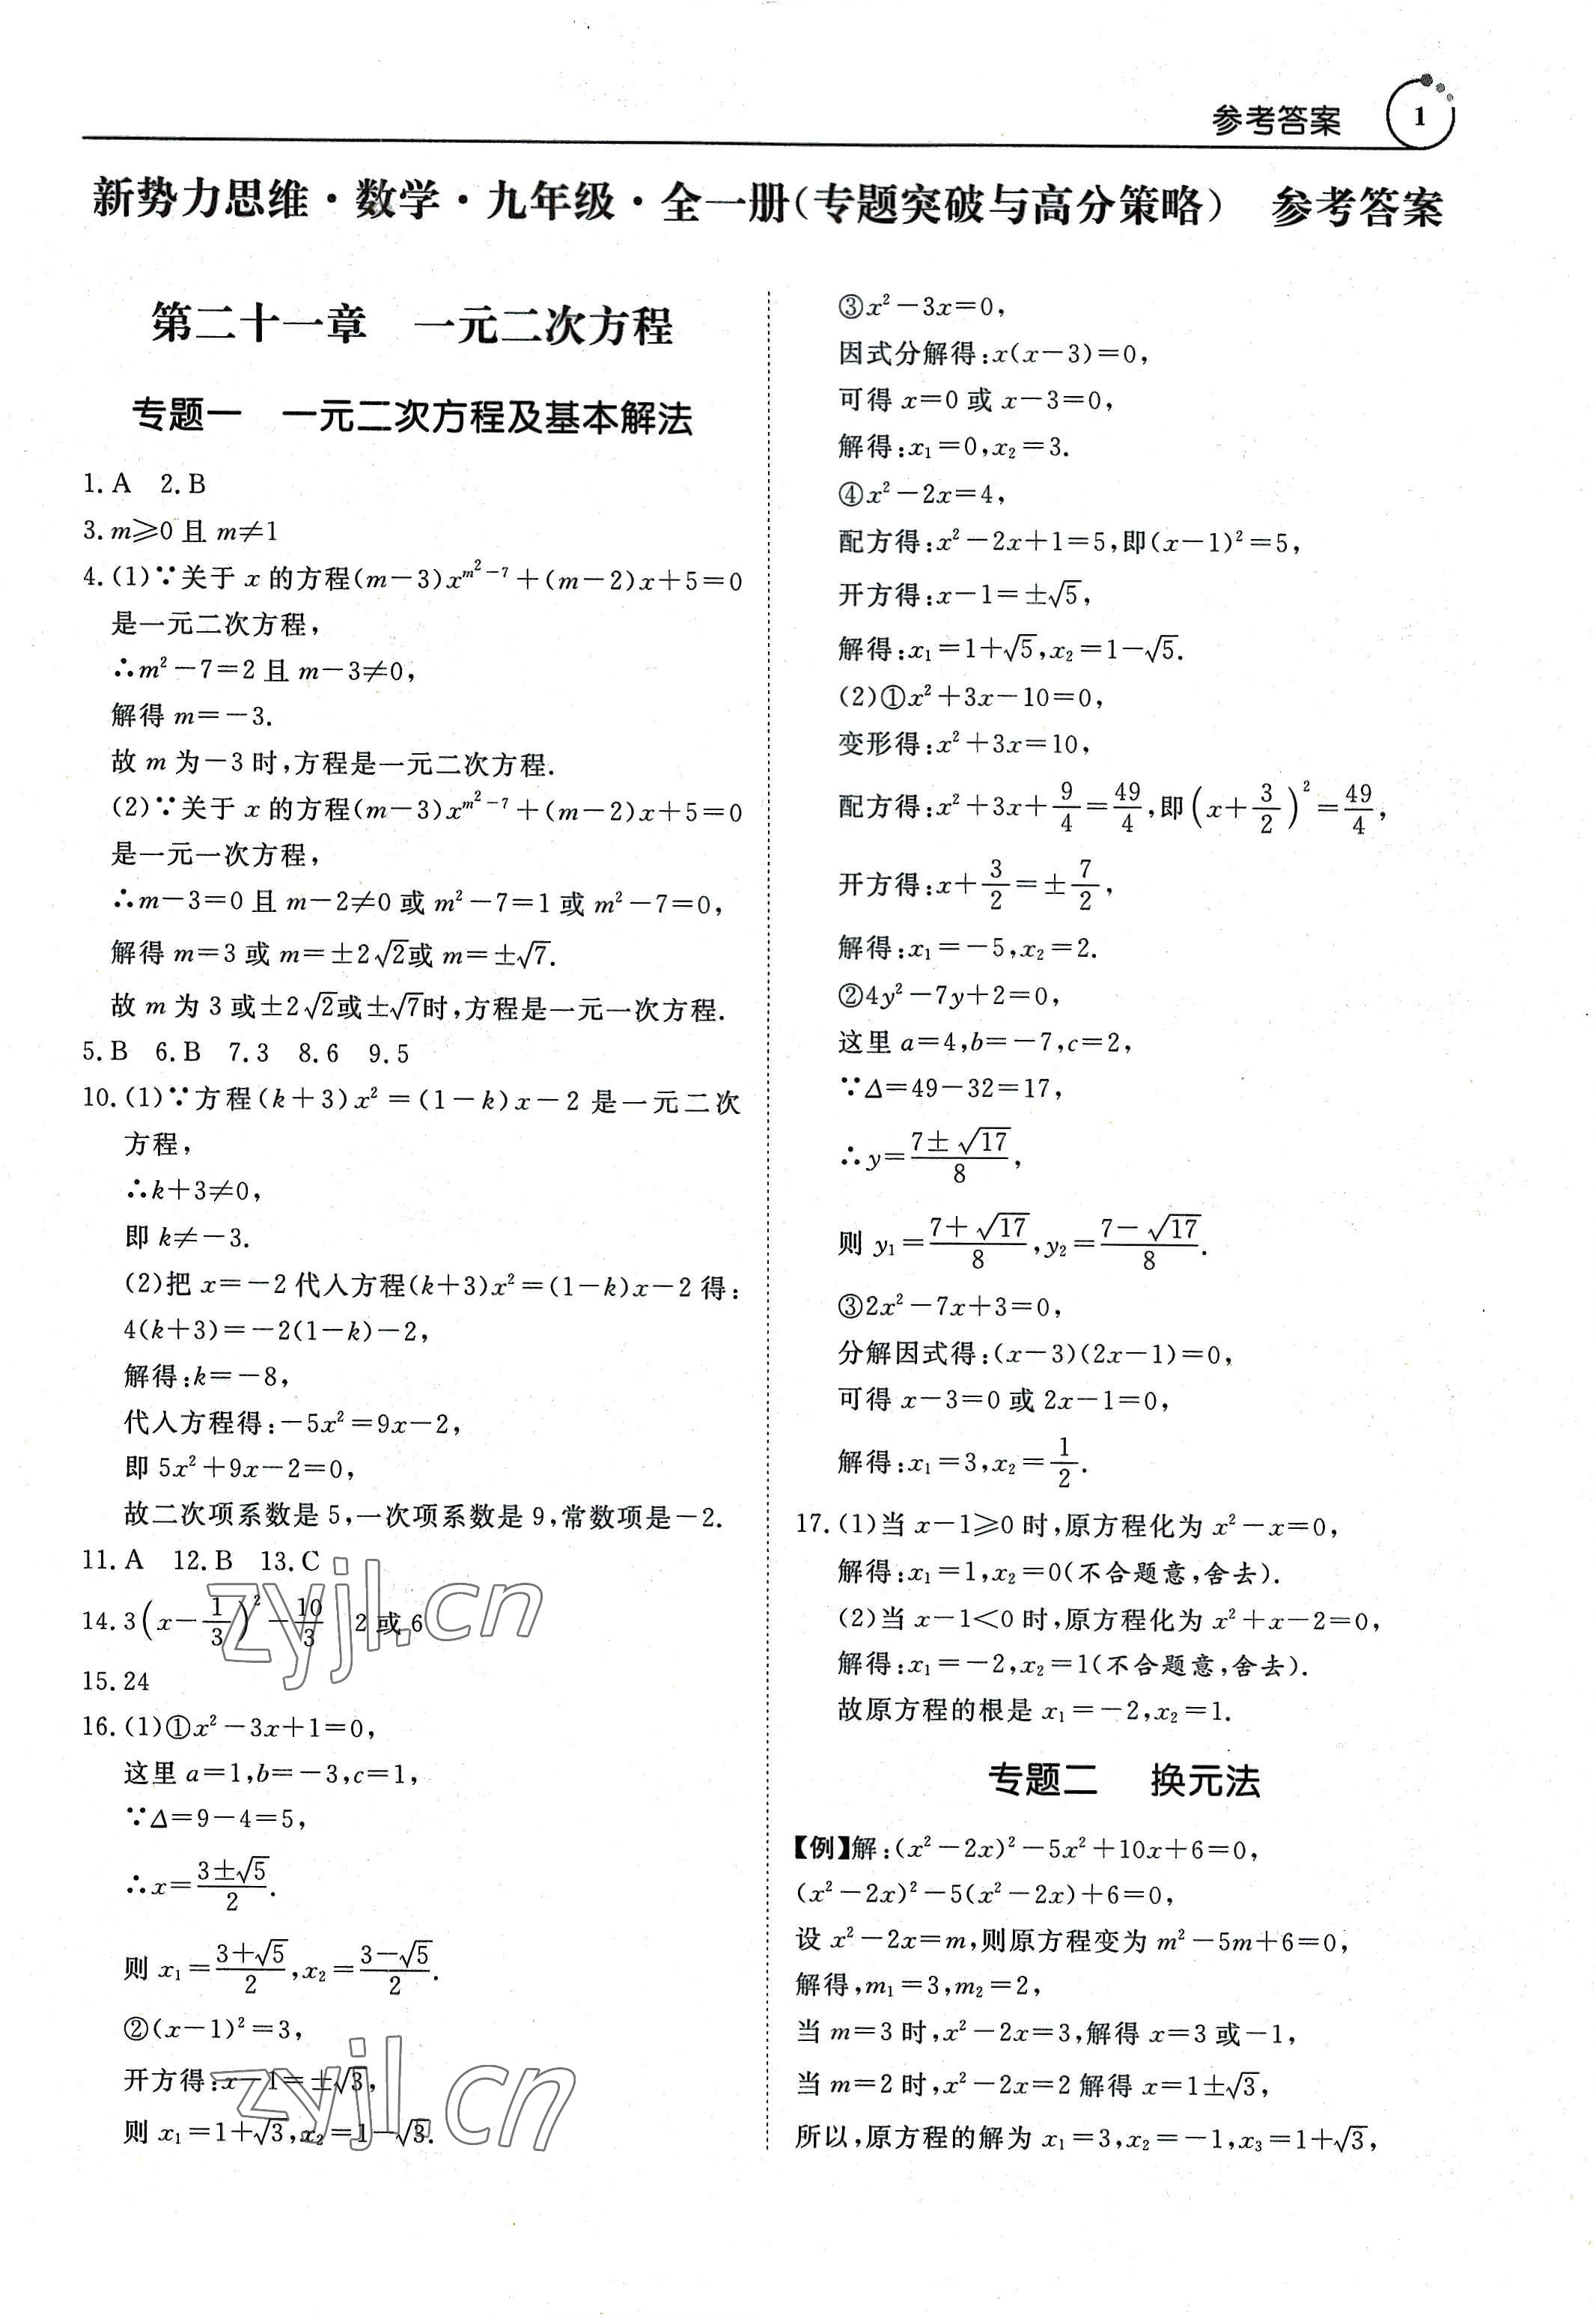 参考答案 1
新势力思维·数学·九年级·全一册(专题突破与高分策略) 参考答案
第二十一章 一元二次方程
专题一 一元二次方程及基本解法
1. A 2. B
3. m≥0 且 m≠1
4. (1)∵关于 x 的方程(m－3)x^{m²－7}＋(m－2)x＋5＝0
是一元二次方程,
∴m²－7＝2 且 m－3≠0,
解得 m＝－3.
故 m 为－3 时,方程是一元二次方程.
(2)∵关于 x 的方程(m－3)x^{m²－7}＋(m－2)x＋5＝0
是一元一次方程,
∴m－3＝0 且 m－2≠0 或 m²－7＝1 或 m²－7＝0,
解得 m＝3 或 m＝±2√2或 m＝±√7.
故 m 为 3 或±2√2或±√7时,方程是一元一次方程.
5. B 6. B 7. 3 8. 6 9. 5
10. (1)∵方程(k＋3)x²＝(1－k)x－2 是一元二次
方程,
∴k＋3≠0,
即 k≠－3.
(2)把 x＝－2 代入方程(k＋3)x²＝(1－k)x－2 得:
4(k＋3)＝－2(1－k)－2,
解得:k＝－8,
代入方程得:－5x²＝9x－2,
即 5x²＋9x－2＝0,
故二次项系数是 5,一次项系数是 9,常数项是－2.
11. A 12. B 13. C
14. 3(x－1/3)²－10/3 2 或 6
zyjl.cn
15. 24
16. (1)①x²－3x＋1＝0,
这里 a＝1,b＝－3,c＝1,
∵Δ＝9－4＝5,
∴x＝(3±√5)/2.
则 x₁＝(3＋√5)/2,x₂＝(3－√5)/2.
②(x－1)²＝3,
开方得:x－1＝±√3,
则 x₁＝1＋√3,x₂＝1－√3.
zyjl.cn
③x²－3x＝0,
因式分解得:x(x－3)＝0,
可得 x＝0 或 x－3＝0,
解得:x₁＝0,x₂＝3.
④x²－2x＝4,
配方得:x²－2x＋1＝5,即(x－1)²＝5,
开方得:x－1＝±√5,
解得:x₁＝1＋√5,x₂＝1－√5.
(2)①x²＋3x－10＝0,
变形得:x²＋3x＝10,
配方得:x²＋3x＋9/4＝49/4,即(x＋3/2)²＝49/4,
开方得:x＋3/2＝±7/2,
解得:x₁＝－5,x₂＝2.
②4y²－7y＋2＝0,
这里 a＝4,b＝－7,c＝2,
∵Δ＝49－32＝17,
∴y＝(7±√17)/8,
则 y₁＝(7＋√17)/8,y₂＝(7－√17)/8.
③2x²－7x＋3＝0,
分解因式得:(x－3)(2x－1)＝0,
可得 x－3＝0 或 2x－1＝0,
解得:x₁＝3,x₂＝1/2.
17. (1)当 x－1≥0 时,原方程化为 x²－x＝0,
解得:x₁＝1,x₂＝0(不合题意,舍去).
(2)当 x－1＜0 时,原方程化为 x²＋x－2＝0,
解得:x₁＝－2,x₂＝1(不合题意,舍去).
故原方程的根是 x₁＝－2,x₂＝1.
专题二 换元法
【例】解:(x²－2x)²－5x²＋10x＋6＝0,
(x²－2x)²－5(x²－2x)＋6＝0,
设 x²－2x＝m,则原方程变为 m²－5m＋6＝0,
解得,m₁＝3,m₂＝2,
当 m＝3 时,x²－2x＝3,解得 x＝3 或－1,
当 m＝2 时,x²－2x＝2 解得 x＝1±√3,
所以,原方程的解为 x₁＝3,x₂＝－1,x₃＝1＋√3,